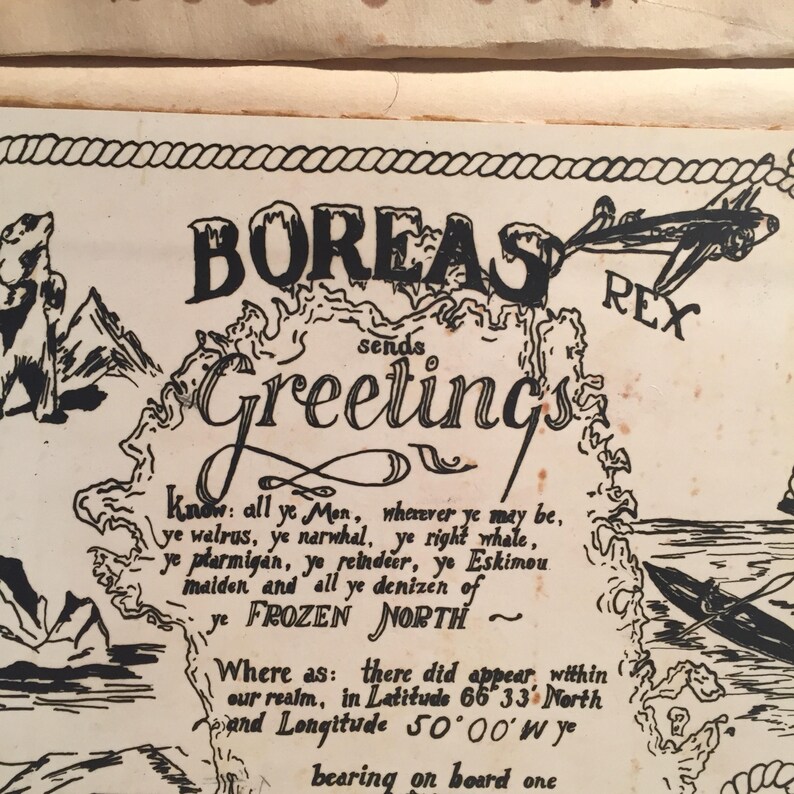 BOREAS
REX
sends
Greetings
Know: all ye Men, wherever ye may be,
ye walrus, ye narwhal, ye right whale,
ye ptarmigan, ye reindeer, ye Eskimou
maiden and all ye denizen of
ye FROZEN NORTH ~
Where as: there did appear within
our realm, in Latitude 66° 33' North
and Longitude 50° 00' W ye
bearing on board one